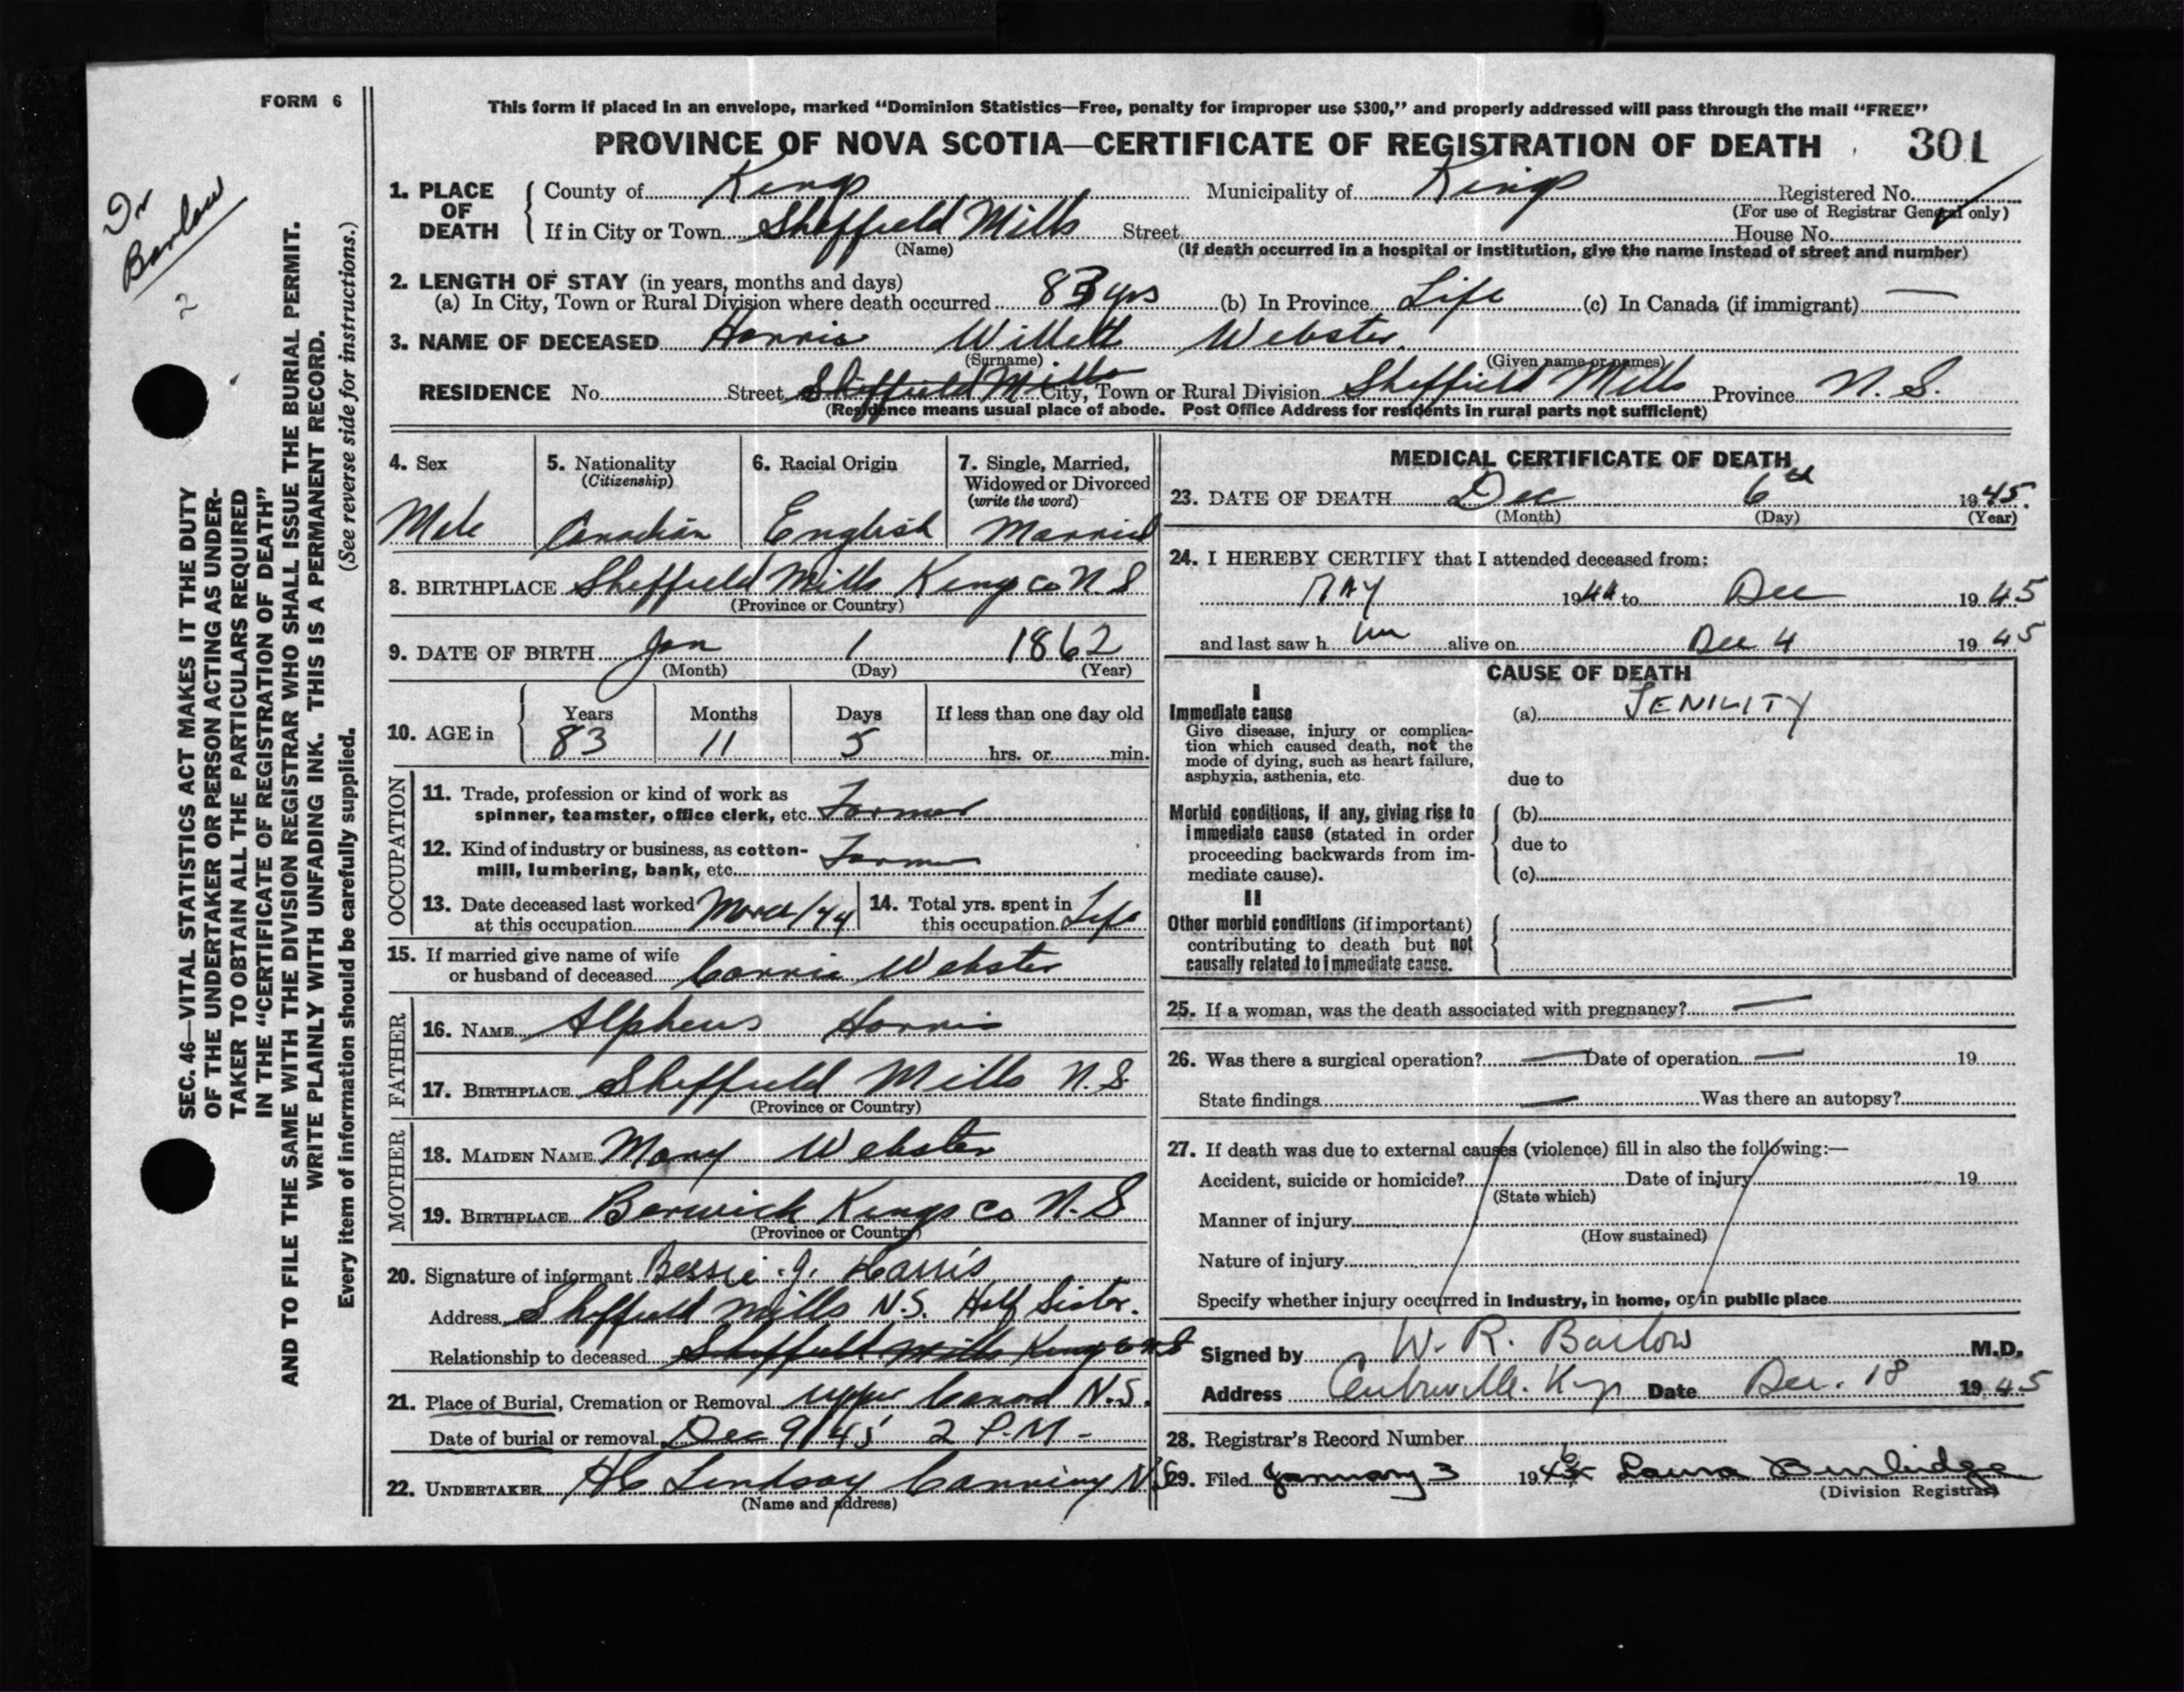 FORM 6
This form if placed in an envelope, marked “Dominion Statistics—Free, penalty for improper use $300,” and properly addressed will pass through the mail “FREE”
PROVINCE OF NOVA SCOTIA—CERTIFICATE OF REGISTRATION OF DEATH 301
Dr
Barlow
2
SEC. 46—VITAL STATISTICS ACT MAKES IT THE DUTY
OF THE UNDERTAKER OR PERSON ACTING AS UNDER-
TAKER TO OBTAIN ALL THE PARTICULARS REQUIRED
IN THE “CERTIFICATE OF REGISTRATION OF DEATH”
AND TO FILE THE SAME WITH THE DIVISION REGISTRAR WHO SHALL ISSUE THE BURIAL PERMIT.
WRITE PLAINLY WITH UNFADING INK. THIS IS A PERMANENT RECORD.
Every item of information should be carefully supplied. (See reverse side for instructions.)
1. PLACE OF DEATH County of Kings Municipality of Kings Registered No.
(For use of Registrar General only)
If in City or Town Sheffield Mills Street House No.
(Name) (If death occurred in a hospital or institution, give the name instead of street and number)
2. LENGTH OF STAY (in years, months and days)
(a) In City, Town or Rural Division where death occurred 83 yrs (b) In Province Life (c) In Canada (if immigrant) —
3. NAME OF DECEASED Harris Willett Webster.
(Surname) (Given name or names)
RESIDENCE No. Street Sheffield Mills City, Town or Rural Division Sheffield Mills Province N. S.
(Residence means usual place of abode. Post Office Address for residents in rural parts not sufficient)
4. Sex 5. Nationality 6. Racial Origin 7. Single, Married,
(Citizenship) Widowed or Divorced
(write the word)
Male Canadian English Married
8. BIRTHPLACE Sheffield Mills Kings Co N. S
(Province or Country)
9. DATE OF BIRTH Jan 1 1862
(Month) (Day) (Year)
10. AGE in Years Months Days If less than one day old
83 11 5 hrs. or min.
OCCUPATION
11. Trade, profession or kind of work as
spinner, teamster, office clerk, etc. Farmer
12. Kind of industry or business, as cotton-
mill, lumbering, bank, etc. Farmer
13. Date deceased last worked March/44 14. Total yrs. spent in
at this occupation this occupation Life
15. If married give name of wife
or husband of deceased Carrie Webster
FATHER
16. NAME Alpheus Harris
17. BIRTHPLACE Sheffield Mills N. S.
(Province or Country)
MOTHER
18. MAIDEN NAME Mary Webster
19. BIRTHPLACE Berwick Kings Co N. S
(Province or Country)
20. Signature of informant Bessie J. Harris
Address Sheffield Mills N.S. Half Sister.
Relationship to deceased Sheffield Mills Kings Co N S
21. Place of Burial, Cremation or Removal Upper Canard N.S.
Date of burial or removal Dec 9/45 2 P.M -
22. UNDERTAKER H C Lindsay Canning N.S
(Name and address)
MEDICAL CERTIFICATE OF DEATH
23. DATE OF DEATH Dec 6th 1945.
(Month) (Day) (Year)
24. I HEREBY CERTIFY that I attended deceased from:
MAY 1944 to Dec 1945
and last saw him alive on Dec 4 1945
CAUSE OF DEATH
I
Immediate cause (a) SENILITY
Give disease, injury or complica-
tion which caused death, not the
mode of dying, such as heart failure,
asphyxia, asthenia, etc. due to
Morbid conditions, if any, giving rise to (b)
immediate cause (stated in order
proceeding backwards from im- due to
mediate cause). (c)
II
Other morbid conditions (if important)
contributing to death but not
causally related to immediate cause.
25. If a woman, was the death associated with pregnancy? —
26. Was there a surgical operation? — Date of operation — 19
State findings — Was there an autopsy?
27. If death was due to external causes (violence) fill in also the following:—
Accident, suicide or homicide? Date of injury 19
(State which)
Manner of injury
(How sustained)
Nature of injury
Specify whether injury occurred in Industry, in home, or in public place
Signed by W. R. Barlow M.D.
Address Centreville. Kings Date Dec. 18 1945
28. Registrar's Record Number
29. Filed January 3 1946 Laura Burbidge
(Division Registrar)